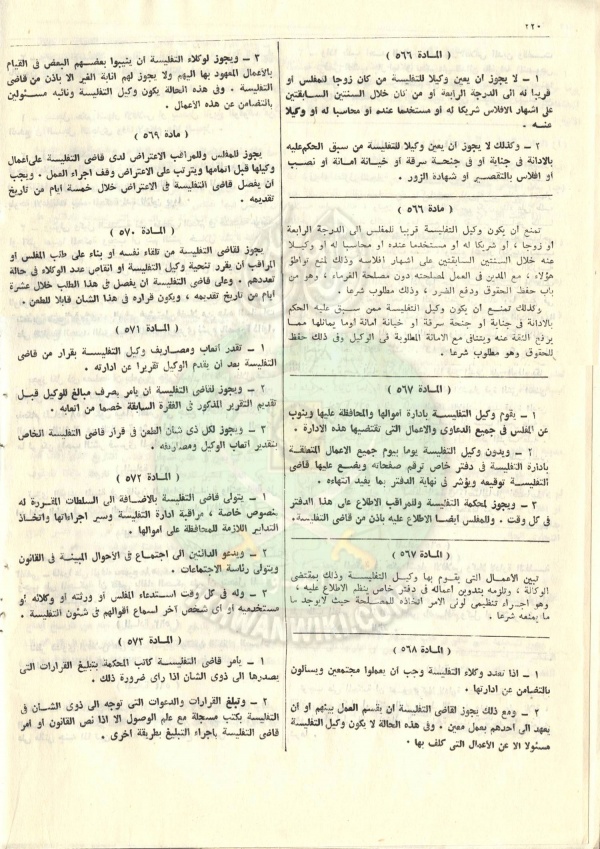 ٢٢٠
( المادة ٥٦٦ )
١ – لا يجوز ان يعين وكيلا للتفليسة من كان زوجا للمفلس او
قريبا له الى الدرجة الرابعة او من كان خلال السنتين السابقتين
على اشهار الافلاس شريكا له او مستخدما عنده او محاسبا له او وكيلا
عنه .
٢ – وكذلك لا يجوز ان يعين وكيلا للتفليسة من سبق الحكم عليه
بالادانة فى جناية او فى جنحة سرقة او خيانة امانة او نصب
او افلاس بالتقصير او شهادة الزور .
( مادة ٥٦٦ )
تمنع ان يكون وكيل التفليسة قريبا للمفلس الى الدرجة الرابعة
او زوجا ، او شريكا له او مستخدما عنده او محاسبا له او وكيلا
عنه خلال السنتين السابقتين على اشهار افلاسه وذلك لمنع تواطؤ
هؤلاء ، مع المدين فى العمل لمصلحته دون مصلحة الغرماء ، وهو من
باب حفظ الحقوق ودفع الضرر ، وذلك مطلوب شرعا .
وكذلك تمتنع ان يكون وكيل التفليسة ممن سبق عليه الحكم
بالادانة فى جناية او جنحة سرقة او خيانة امانة اوما يماثلها مما
يرفع الثقة عنه ويتنافى مع الامانة المطلوبة فى الوكيل وفى ذلك حفظ
للحقوق وهو مطلوب شرعا .
( المادة ٥٦٧ )
١ – يقوم وكيل التفليسة بادارة اموالها والمحافظة عليها وينوب
عن المفلس فى جميع الدعاوى والاعمال التى تقتضيها هذه الادارة .
٢ – ويدون وكيل التفليسة يوما بيوم جميع الاعمال المتعلقة
بادارة التفليسة فى دفتر خاص ترقم صفحاته ويضع عليها قاضى
التفليسة توقيعه ويؤشر فى نهاية الدفتر بما يفيد انتهاءه .
٣ – ويجوز لمحكمة التفليسة وللمراقب الاطلاع على هذا الدفتر
فى كل وقت . وللمفلس ايضا الاطلاع عليه باذن من قاضى التفليسة.
( المادة ٥٦٧ )
تبين الاعمال التى يقوم بها وكيل التفليسة وذلك بمقتضى
الوكالة ، وتلزمه بتدوين اعماله فى دفتر خاص ينظم الاطلاع عليه ،
وهو اجراء تنظيمى لولى الامر اتخاذه للمصلحة حيث لايوجد ما
يمنعه شرعا .
( المادة ٥٦٨ )
١ – اذا تعدد وكلاء التفليسة وجب ان يعملوا مجتمعين ويسألون
بالتضامن عن ادارتها .
٢ – ومع ذلك يجوز لقاضى التفليسة ان يقسم العمل بينهم او ان
يعهد الى احدهم بعمل معين . وفى هذه الحالة لا يكون وكيل التفليسة
مسئولا الا عن الأعمال التى كلف بها .
٣ – ويجوز لوكلاء التفليسة ان ينيبوا بعضهم البعض فى القيام
بالأعمال المعهود بها اليهم ولا يجوز لهم انابة الغير الا باذن من قاضى
التفليسة . وفى هذه الحالة يكون وكيل التفليسة ونائبه مسئولين
بالتضامن عن هذه الاعمال .
( مادة ٥٦٩ )
يجوز للمفلس وللمراقب الاعتراض لدى قاضى التفليسة على أعمال
وكيلها قبل اتمامها ويترتب على الاعتراض وقف اجراء العمل . ويجب
ان يفصل قاضى التفليسة فى الاعتراض خلال خمسة ايام من تاريخ
تقديمه .
( المادة ٥٧٠ )
يجوز لقاضى التفليسة من تلقاء نفسه او بناء على طلب المفلس او
المراقب أن يقرر تنحية وكيل التفليسة او انقاص عدد الوكلاء فى حالة
تعددهم . وعلى قاضى التفليسة ان يفصل فى هذا الطلب خلال عشرة
أيام من تاريخ تقديمه ، ويكون قراره فى هذا الشان قابلا للطعن .
( المادة ٥٧١ )
١ – تقدر أتعاب ومصاريف وكيل التفليسة بقرار من قاضى
التفليسة بعد ان يقدم الوكيل تقريرا عن ادارته .
٢ – ويجوز لقاضى التفليسة ان يأمر بصرف مبالغ للوكيل قبل
تقديم التقرير المذكور فى الفقرة السابقة خصما من اتعابه .
٣ – ويجوز لكل ذى شأن الطعن فى قرار قاضى التفليسة الخاص
بتقدير اتعاب الوكيل ومصاريفه .
( المادة ٥٧٢ )
١ – يتولى قاضى التفليسة بالاضافة الى السلطات المقررة له
بنصوص خاصة ، مراقبة ادارة التفليسة وسير اجراءاتها واتخاذ
التدابير اللازمة للمحافظة على اموالها .
٢ – ويدعو الدائنين الى اجتماع فى الأحوال المبينة فى القانون
ويتولى رئاسة الاجتماعات .
٣ – وله فى كل وقت استدعاء المفلس أو ورثته او وكلائه أو
مستخدميه أو أى شخص آخر لسماع أقوالهم فى شئون التفليسة .
( المادة ٥٧٣ )
١ – يأمر قاضى التفليسة كاتب المحكمة بتبليغ القرارات التى
يصدرها الى ذوى الشان اذا راى ضرورة ذلك .
٢ – وتبلغ القرارات والدعوات التى توجه الى ذوى الشان فى
التفليسة بكتب مسجلة مع علم الوصول الا اذا نص القانون او امر
قاضى التفليسة باجراء التبليغ بطريقة اخرى .